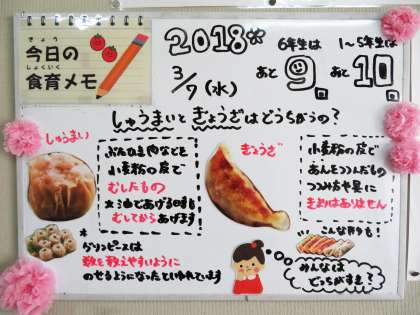 きょう
今日の
しょくいく
食育メモ
2018年
3/7(水)
6年生は
あと 9日
1〜5年生は
あと 10日
しゅうまいときょうざはどうちがうの?
しゅうまい
ぶたひき肉などを
小麦粉の皮で
むしたもの
※油であげる時も
むしてからあげます
グリンピースは
数を数えやすいように
のせるようになったといわれています
きょうざ
小麦粉の皮で
あんをつつんだもの
つつみ方や具に
きまりはありません
こんな形も!
みんなは
どっちがすき?